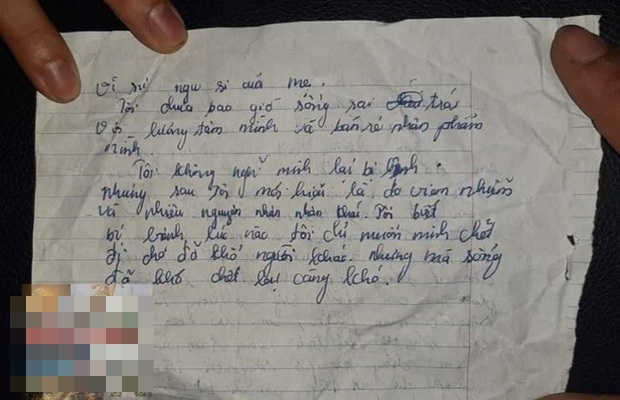 Vì sự ngu si của mẹ.
Tôi chưa bao giờ sống sai trái
Với lương tâm mình và bán rẻ nhân phẩm
mình.
Tôi không nghĩ mình lại bị bệnh.
nhưng sau tôi mới hiểu là do viêm nhiễm
và nhiều nguyên nhân nhân khác. Tôi biết
bị bệnh lúc nào tôi chỉ muốn mình chết
đi cho đỡ khổ người khác. nhưng mà sống
đã khó chết lại càng khó.